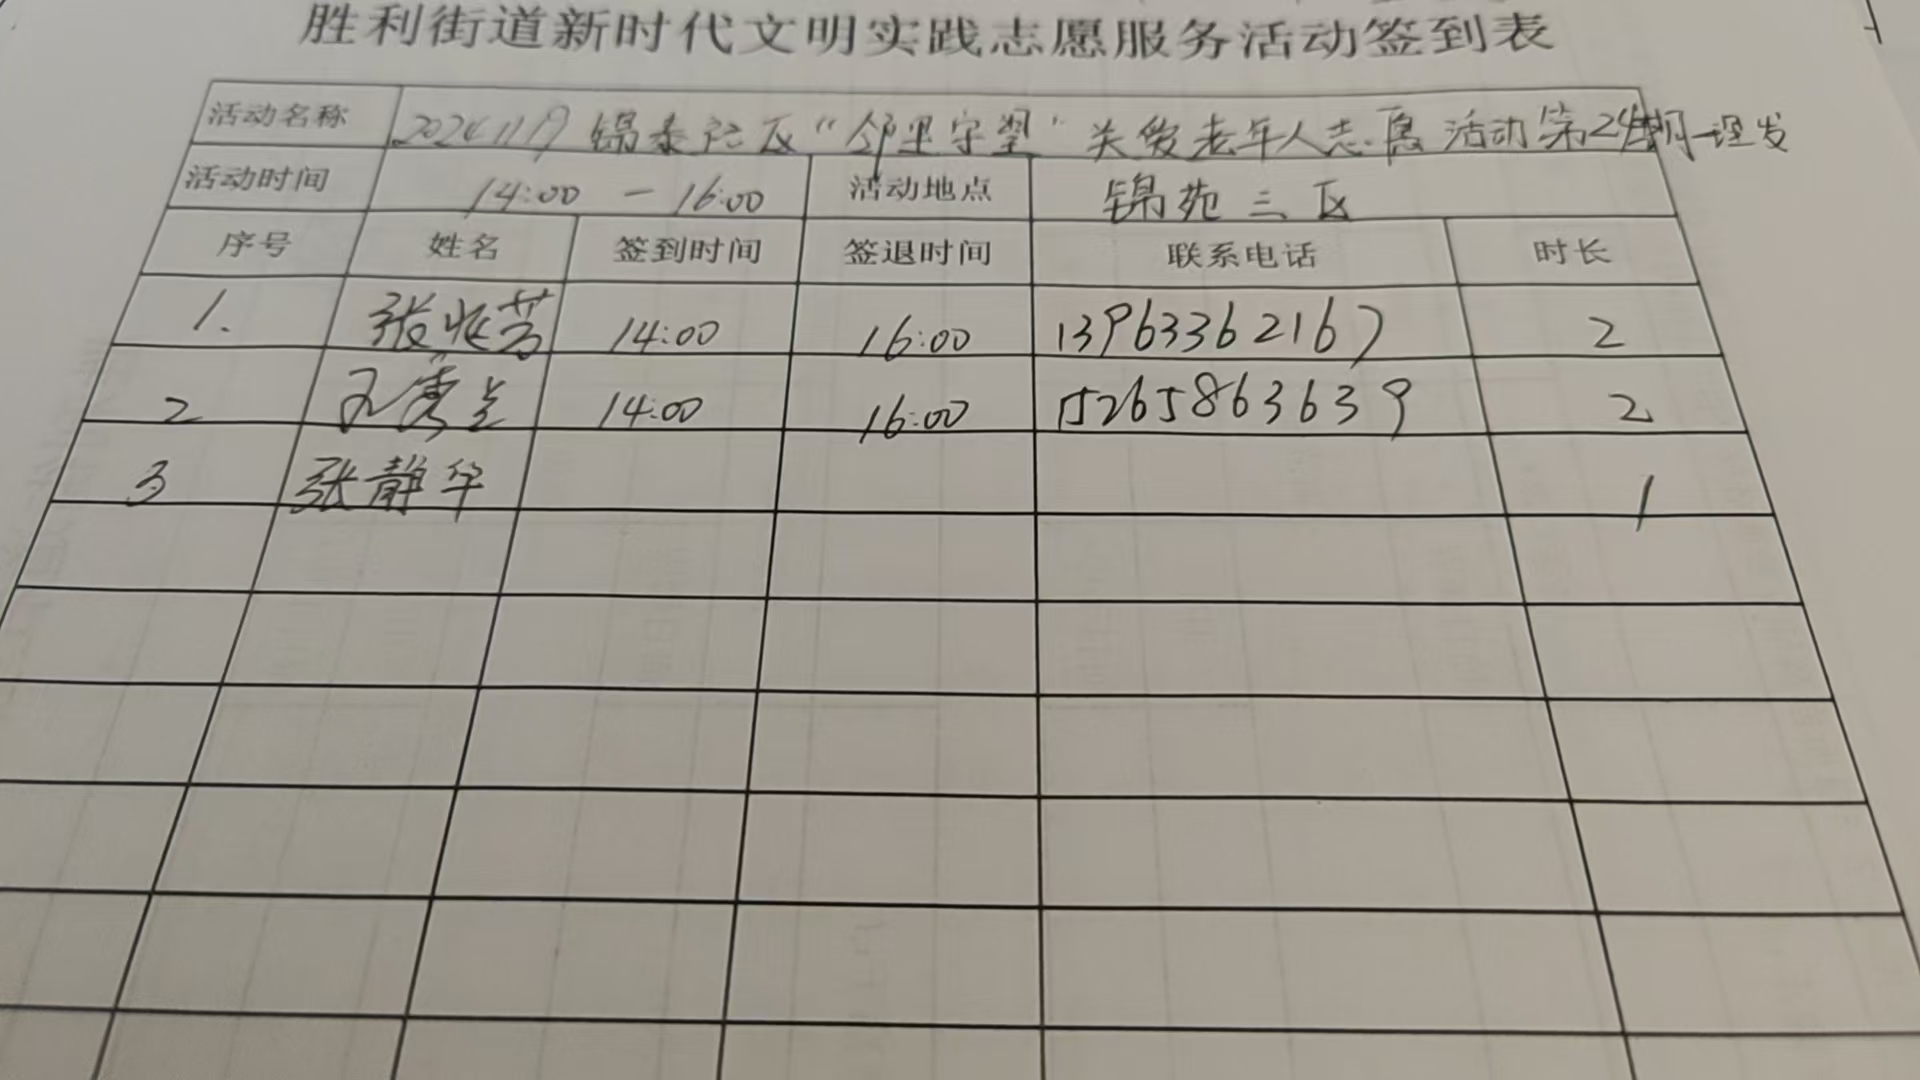 胜利街道新时代文明实践志愿服务活动签到表
活动名称 2024.11月 锦泰社区“邻里守望”关爱老年人志愿活动第24期-理发
活动时间 14:00 - 16:00 活动地点 锦苑三区
序号 姓名 签到时间 签退时间 联系电话 时长
1. 张兆芳 14:00 16:00 13963362167 2
2 王秀兰 14:00 16:00 15265863639 2
3 张静华 1